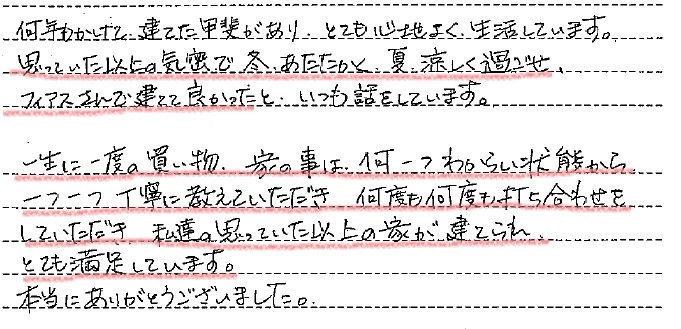 何年もかけて、建てた甲斐があり、とても心地よく、生活しています。
思っていた以上の気密で、冬、あたたかく、夏、涼しく過ごせ、
フィアスさんで建てて良かったと、いつも話をしています。
一生に一度の買い物、家の事は、何一つわからない状態から、
一つ一つ丁寧に教えていただき 何度も何度も打ち合わせを
していただき、私達の思っていた以上の家が建てられ、
とても満足しています。
本当にありがとうございました。